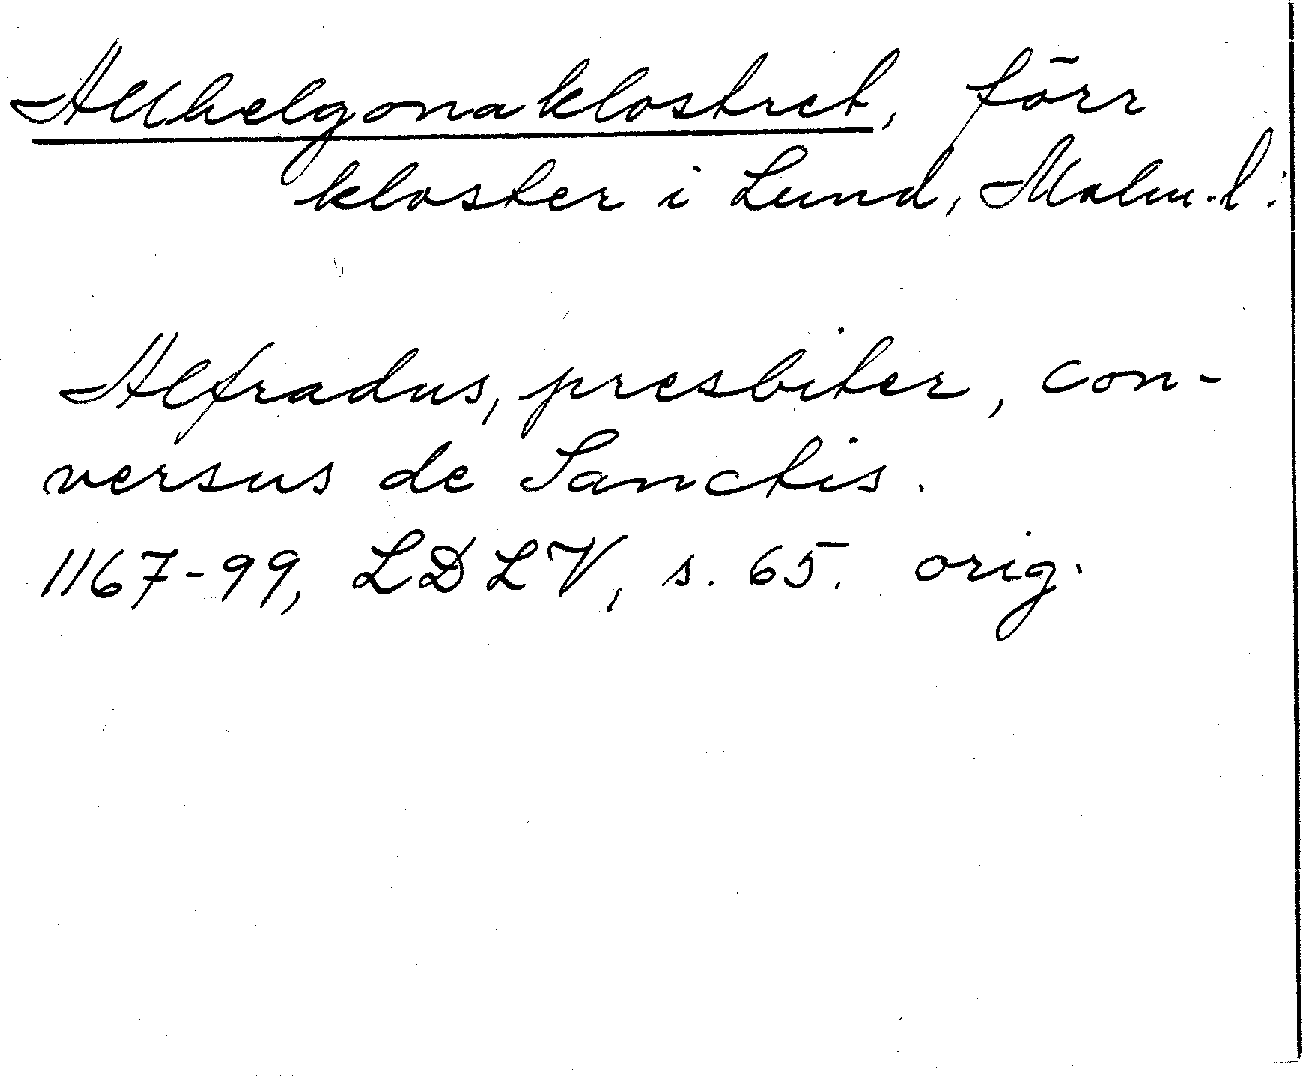 Allhelgonaklostret, förr
kloster i Lund, Malm.l.
Alfradus, presbiter, con-
versus de Sanctis.
1167-99, LDLV, s. 65. orig.